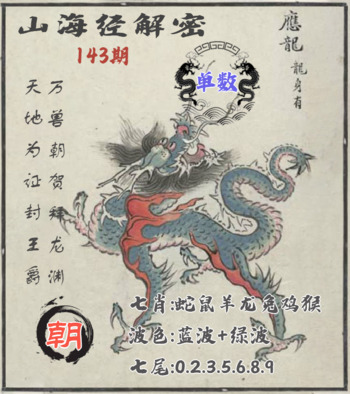 山海经解密
143期
應龍
龍身有
单数
万兽朝贺释龙渊
天地为证封王爵
朝
七肖:蛇鼠羊龙兔鸡猴
波色:蓝波+绿波
七尾:0.2.3.5.6.8.9